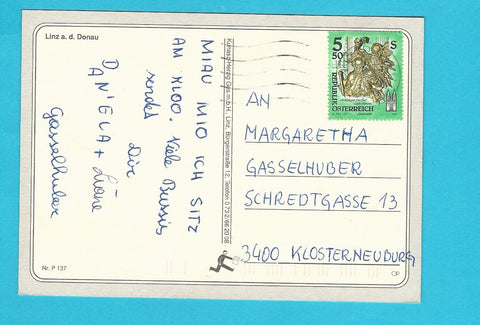 Linz a. d. Donau
MIAU MIO ICH SITZ
AM KLOO. Viele Bussis
sendet
Dir
DANIELA +
Gasselhuber
Nr. P 137
Linz, Bürgerstraße 12, Telefon
5
50
S
REPUBLIK
ÖSTERREICH
AN
MARGARETHA
GASSELHUBER
SCHREDTGASSE 13
3400 KLOSTERNEUBURG
CP